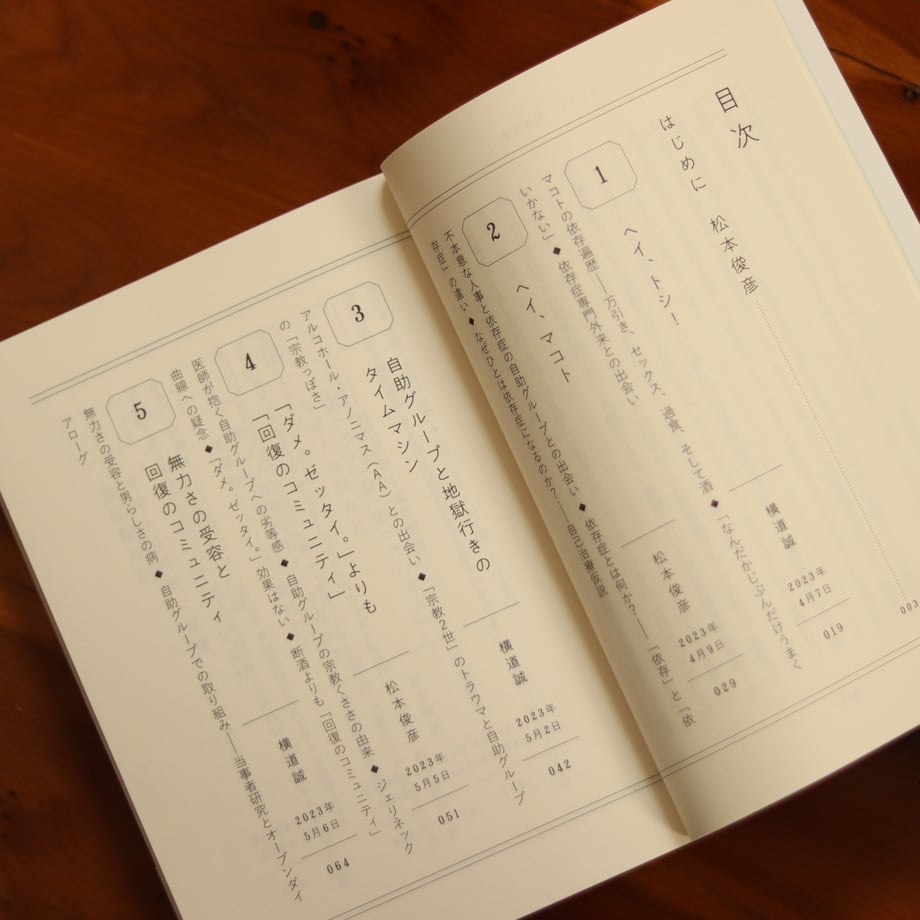 目次
はじめに 松本俊彦 003
1
ヘイ、トシ!
横道誠
2023年
4月7日
019
マコトの依存遍歴――万引き、セックス、過食、そして酒◆「なんだかじぶんだけうまく
いかない」◆依存症専門外来との出会い
2
ヘイ、マコト
松本俊彦
2023年
4月9日
029
不本意な人事と依存症の自助グループとの出会い◆依存症とは何か?――「依存」と「依
存症」の違い◆なぜひとは依存症になるのか?――自己治療仮説
3
自助グループと地獄行きの
タイムマシン
横道誠
2023年
5月2日
042
アルコホール・アノニマス(AA)との出会い◆「宗教2世」のトラウマと自助グループ
の「宗教っぽさ」
4
「ダメ。ゼッタイ。」よりも
「回復のコミュニティ」
松本俊彦
2023年
5月5日
051
医師が抱く自助グループへの劣等感◆自助グループの宗教くささの由来◆ジェリネック
曲線への疑念◆「ダメ。ゼッタイ。」効果はない◆断酒よりも「回復のコミュニティ」
5
無力さの受容と
回復のコミュニティ
横道誠
2023年
5月6日
064
無力さの受容と男らしさの病◆自助グループでの取り組み――当事者研究とオープンダイ
アローグ